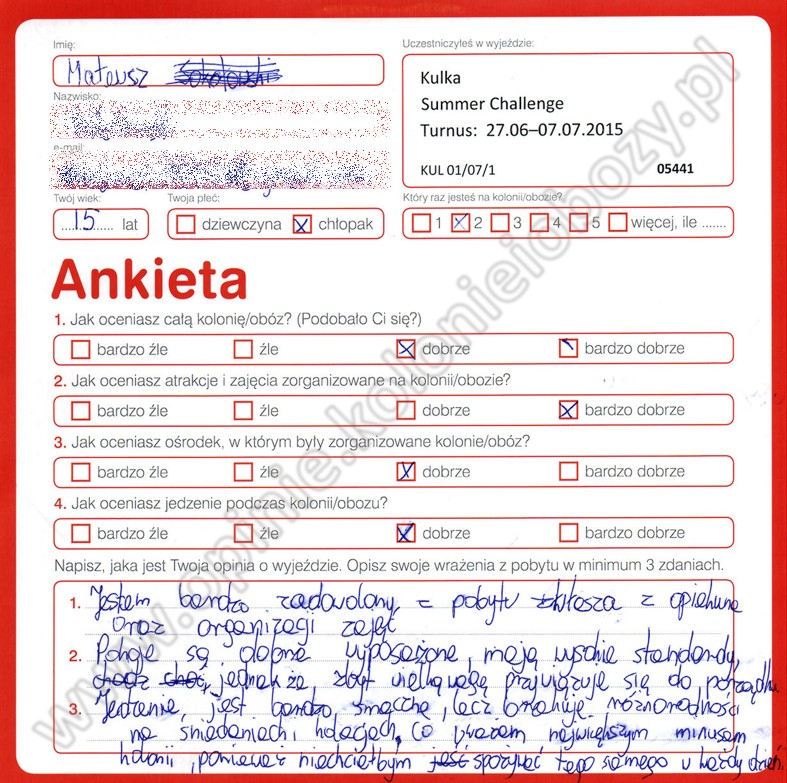 Imię:
Mateusz
Uczestniczyłeś w wyjeździe:
Kulka
Summer Challenge
Turnus: 27.06–07.07.2015
KUL 01/07/1 05441
Nazwisko:
e-mail:
Twój wiek:
15 lat
Twoja płeć:
dziewczyna chłopak
Który raz jesteś na kolonii/obozie?
1 2 3 4 5 więcej, ile .......
Ankieta
1. Jak oceniasz całą kolonię/obóz? (Podobało Ci się?)
bardzo źle źle dobrze bardzo dobrze
2. Jak oceniasz atrakcje i zajęcia zorganizowane na kolonii/obozie?
bardzo źle źle dobrze bardzo dobrze
3. Jak oceniasz ośrodek, w którym były zorganizowane kolonie/obóz?
bardzo źle źle dobrze bardzo dobrze
4. Jak oceniasz jedzenie podczas kolonii/obozu?
bardzo źle źle dobrze bardzo dobrze
Napisz, jaka jest Twoja opinia o wyjeździe. Opisz swoje wrażenia z pobytu w minimum 3 zdaniach.
1. Jestem bardzo zadowolony z pobytu z
oraz organizacji zajęć
2. Pokoje są dobrze wyposażone, mają wysokie standardy,
jednak że zbyt wielką wagę przywiązuje się do porządku
3. Jedzenie, jest bardzo smaczne, lecz brakuje różnorodności
na śniadaniach i kolacjach, co uważam największym minusem
kolonii, ponieważ niechciałbym spożywać tego samego w każdy dzień.
www.opinie.kolonieiobozy.pl